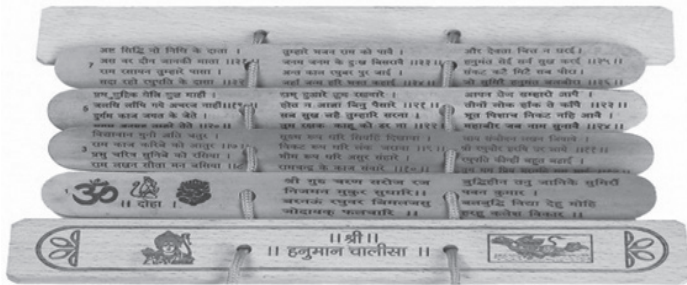 7
अष्ट सिद्धि नौ निधि के दाता ।
अस बर दीन जानकी माता ।।३१।।
राम रसायन तुम्हारे पासा ।
सदा रहो रघुपति के दासा ।।३२।।
तुम्हारे भजन राम को पावै ।
जनम जनम के दुःख बिसरावै ।।३३।।
अन्त काल रघुबर पुर जाई ।
जहाँ जन्म हरि भक्त कहाई ।।३४।।
और देवता चित्त न धरई ।
हनुमंत सेई सर्ब सुख करई ।।३५।।
संकट कटै मिटै सब पीरा ।
जो सुमिरै हनुमत बलबीरा ।।३६।।
5
प्रभु मुद्रिका मेलि मुख माहीं ।
जलधि लाँघि गये अचरज नाहीं ।।१९।।
दुर्गम काज जगत के जेते ।
राम दुआरे तुम रखवारे ।
होत न आज्ञा बिनु पैसारे ।।२१।।
सब सुख लहै तुम्हारि सरना ।
तुम रक्षक काहू को डर ना ।।२२।।
आपन तेज सम्हारो आपै ।
तीनों लोक हाँक ते काँपै ।।२३।।
भूत पिशाच निकट नहि आवै ।
महाबीर जब नाम सुनावै ।।२४।।
3
विद्यावान गुनी अति चातुर ।
राम काज करिबे को आतुर ।।७।।
प्रभु चरित्र सुनिबे को रसिया ।
राम लखन सीता मन बसिया ।
सूक्ष्म रूप धरि सियहिं दिखावा ।
बिकट रूप धरि लंक जरावा ।।९।।
भीम रूप धरि असुर संहारे ।
रामचन्द्र के काज संवारे ।।१०।।
श्री रघुबीर हरषि उर लाये ।।११।।
रघुपति कीन्हीं बहुत बड़ाई ।
1
ॐ
।। दोहा ।
श्री गुरु चरण सरोज रज
निजमन मुकुर सुधारि।।
बरनऊं रघुबर बिमलजसु
जोदायकु फलचारि ।।
बुद्धिहीन तनु जानिके सुमिरौं
पवन कुमार ।
बलबुद्धि विद्या देहु मोहि
हरहु कलेश विकार ।।
।।श्री।।
।। हनुमान चालीसा ।।